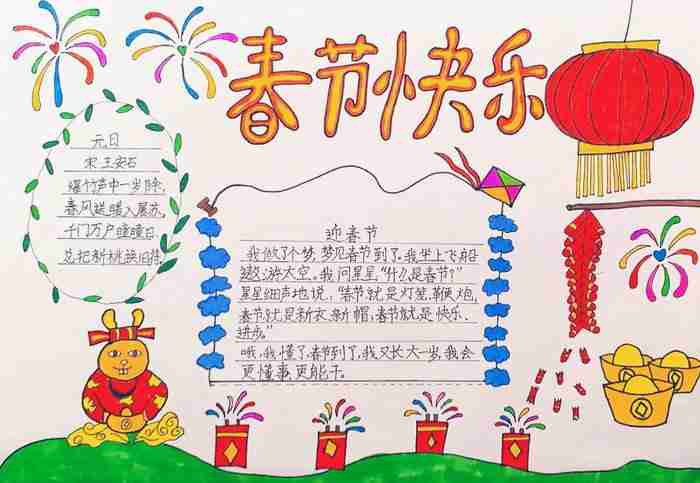 春节快乐
元日
宋 王安石
爆竹声中一岁除,
春风送暖入屠苏,
千门万户曈曈日
总把新桃换旧符
迎春节
我做了个梦,梦见春节到了。我坐上飞船
遨游太空。我问星星,“什么是春节?”
星星细声地说,“春节就是灯笼,鞭炮,
春节就是新衣、新帽,春节就是快乐、
进步。”
哦,我懂了,春节到了,我又长大一岁,我会
更懂事,更能干。